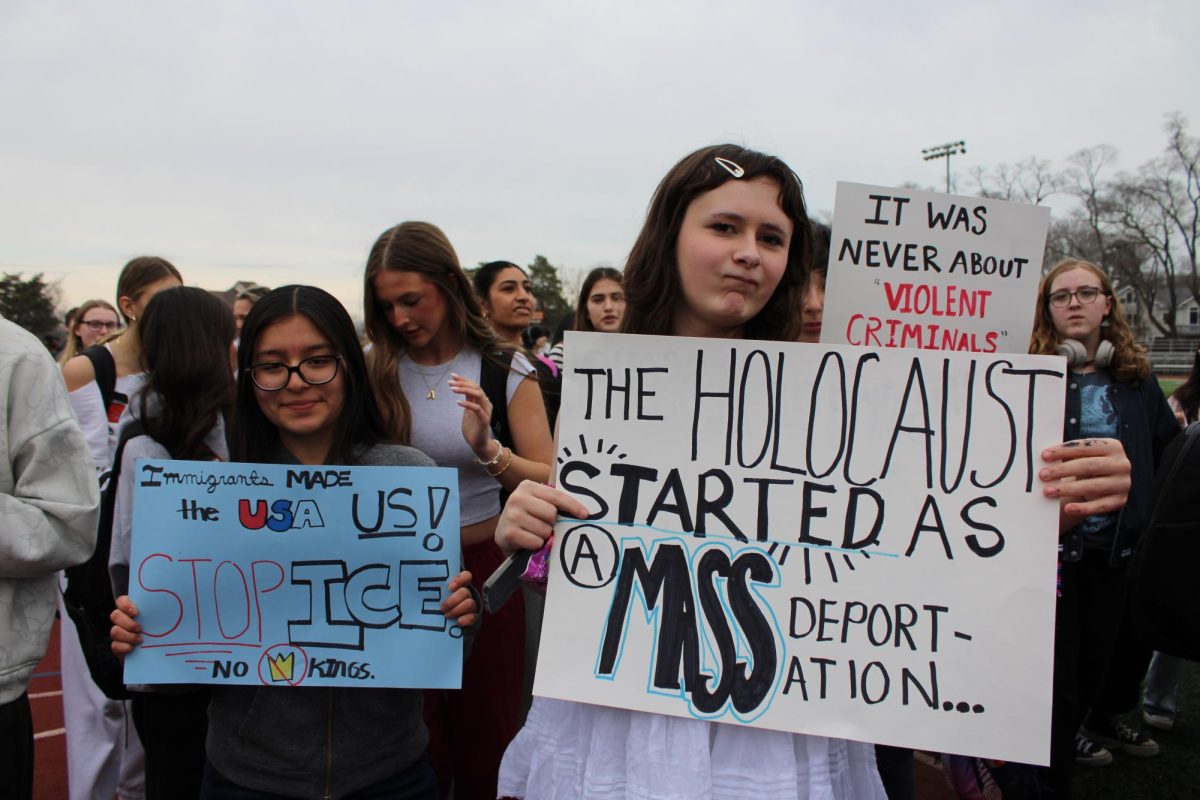 Immigrants MADE
the USA US!
STOP ICE.
NO KINGS.
THE HOLOCAUST
STARTED AS
A MASS DEPORT-
ATION...
IT WAS
NEVER ABOUT
"VIOLENT
CRIMINALS"
A